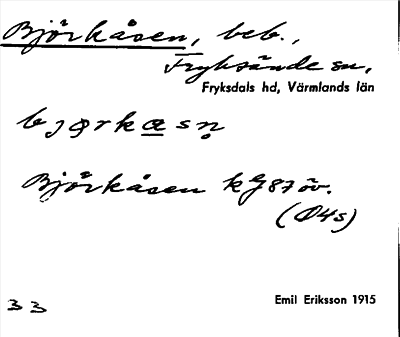 Björkåsen, beb.,
Fryksände sn,
Fryksdals hd, Värmlands län
bjørkasn̥
Björkåsen 87 öv.
(Ö4s)
Emil Eriksson 1915
33